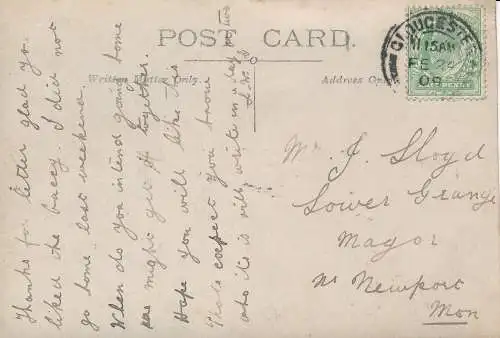 POST CARD.
Written Matter Only.
Address On
GLOUCESTER
11 15AM
FE 24
09
Thanks for letter glad you
liked the baccy. I did not
go home last weekend.
When do you intend going home
we might get it together.
Hope you will like this
Photo expect you know
who it is will write in a day or two
Mr J. Lloyd
Lower Grange
Magor
Nr Newport
Mon